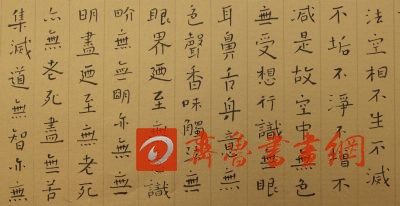 法空相不生不滅
不垢不淨不增不
減是故空中無色
無受想行識無眼
耳鼻舌身意無
色聲香味觸無
眼界廼至無識
畍無無明亦無無
明盡廼至無老死
亦無老死盡無苦
集滅道無智亦無
齊魯書畫網